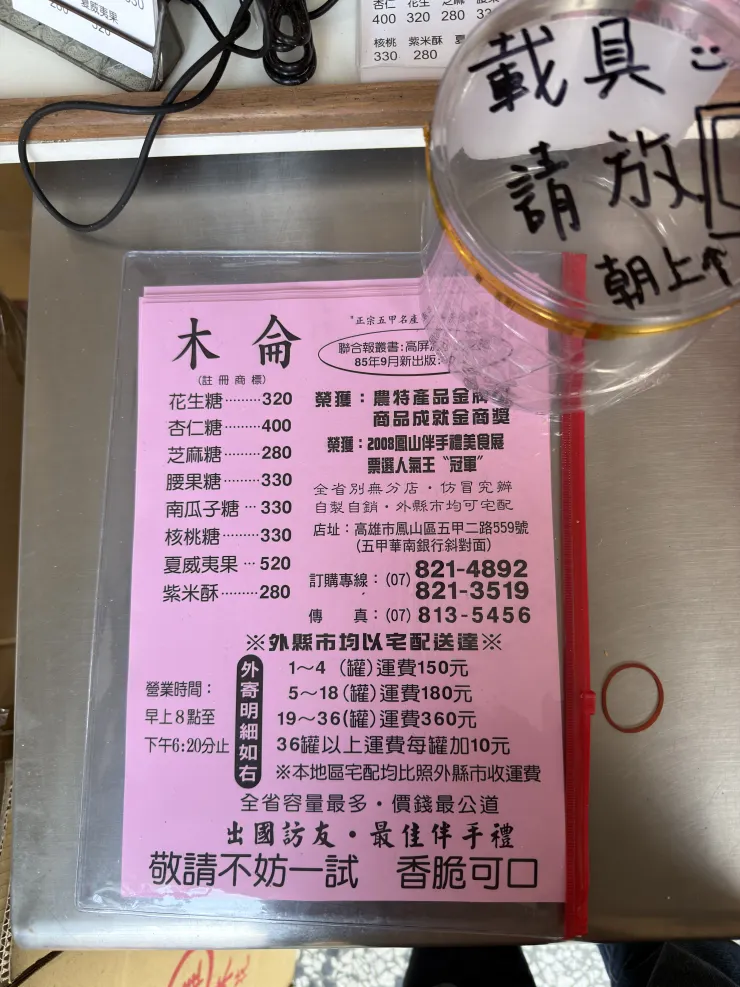 夏威夷果
520
杏仁 花生 芝麻 腰果
400 320 280
核桃 紫米酥
330 280
載具
請放
朝上
木侖
(註冊商標)
"正宗五甲名產
聯合報叢書:高屏
85年9月新出版:
花生糖………320
杏仁糖………400
芝麻糖………280
腰果糖………330
南瓜子糖…330
核桃糖………330
夏威夷果…520
紫米酥………280
榮獲:農特產品金牌
商品成就金商獎
榮獲:2008鳳山伴手禮美食展
票選人氣王"冠軍"
全省別無分店・仿冒究辦
自製自銷・外縣市均可宅配
店址:高雄市鳳山區五甲二路559號
(五甲華南銀行斜對面)
訂購專線:(07) 821-4892
821-3519
傳 真:(07) 813-5456
※外縣市均以宅配送達※
營業時間:
早上8點至
下午6:20分止
外寄明細如右
1～4(罐)運費150元
5～18(罐)運費180元
19～36(罐)運費360元
36罐以上運費每罐加10元
※本地區宅配均比照外縣市收運費
全省容量最多・價錢最公道
出國訪友・最佳伴手禮
敬請不妨一試 香脆可口